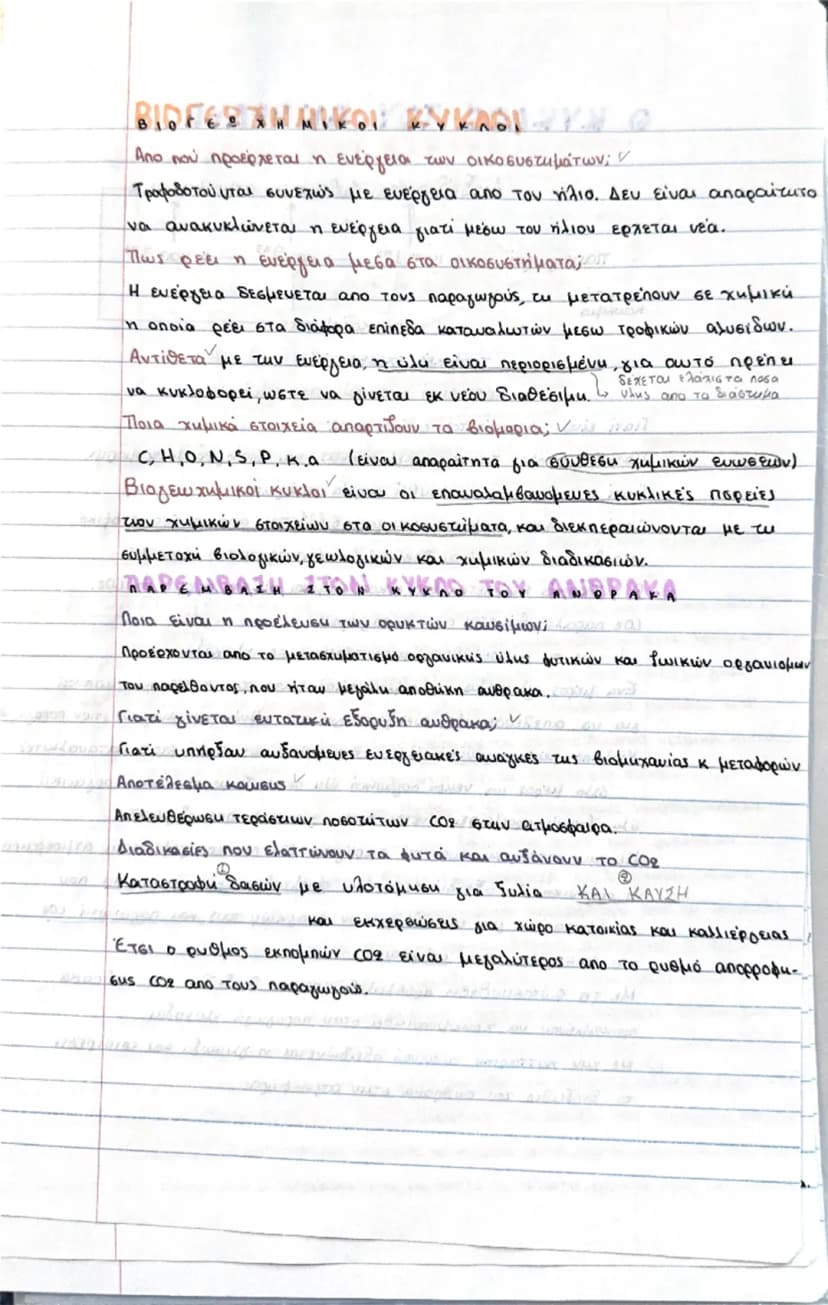 ΒΙΟΓΕΩΧΗΜΙΚΟΙ ΚΥΚΛΟΙ
Απο πού προέρχεται η ενέργεια των οικοσυστημάτων; ✓
Τροφοδοτούνται συνεχώς με ενέργεια απο τον ήλιο. Δεν είναι απαραίτητο
να ανακυκλώνεται η ενέργεια γιατί μέσω του ήλιου ερχεται νέα.
Πώς ρέει η ενέργεια μεσα στα οικοσυστήματα;
Η ενέργεια δεσμευεται απο τους παραγωγούς, τη μετατρέπουν σε χημική
η οποία ρέει στα διάφορα επίπεδα καταναλωτών μεσω τροφικών αλυσίδων.
Αντίθετα ✓ με την ενέργεια, η ύλη είναι περιορισμένη, για αυτό πρέπει
να κυκλοφορεί, ώστε να γίνεται εκ νέου διαθέσιμη. ↳ δεχεται ελάχιστα ποσα
ύλης απο το διάστημα
Ποια χημικά στοιχεία απαρτίζουν τα βιόμορια; ✓
C, H, O, N, S, P, κ.α (είναι απαραίτητα για σύνθεση χημικών ενωσεων)
Βιογεωχημικοί κυκλοι ✓ είναι οι επαναλαμβανόμενες κυκλικές πορείες
των χημικών στοιχείων στα οικοσυστήματα, και διεκπεραιώνονται με τη
συμμετοχή βιολογικών, γεωλογικών και χημικών διαδικασιών.
ΠΑΡΕΜΒΑΣΗ ΣΤΟΝ ΚΥΚΛΟ ΤΟΥ ΑΝΘΡΑΚΑ
Ποια είναι η προέλευση των ορυκτών καυσίμων;
Προέρχονται απο το μετασχηματισμό οργανικής ύλης φυτικών και ζωικών οργανισμων
του παρελθοντος, που ήταν μεγάλη αποθήκη ανθρακα.
Γιατί γίνεται εντατική εξόρυξη ανθρακα; ✓
Γιατί υπήρξαν αυξανόμενες ενεργειακές αναγκες της βιομηχανίας κ μεταφορών
Αποτέλεσμα καύσης ✓
Απελευθέρωση τεράστιων ποσοτήτων CO2 στην ατμοσφαιρα.
Διαδικασίες που ελαττώνουν τα φυτά και αυξάνουν το CO2
Καταστροφή ① δασών με υλοτόμηση για ξυλία ΚΑΙ ② ΚΑΥΣΗ
και εκχερσώσεις για χώρο κατοικίας και καλλιέργειας
Έτσι ο ρυθμος εκπομπών CO2 είναι μεγαλύτερος απο το ρυθμό απορροφη-
σης CO2 απο τους παραγωγούς.